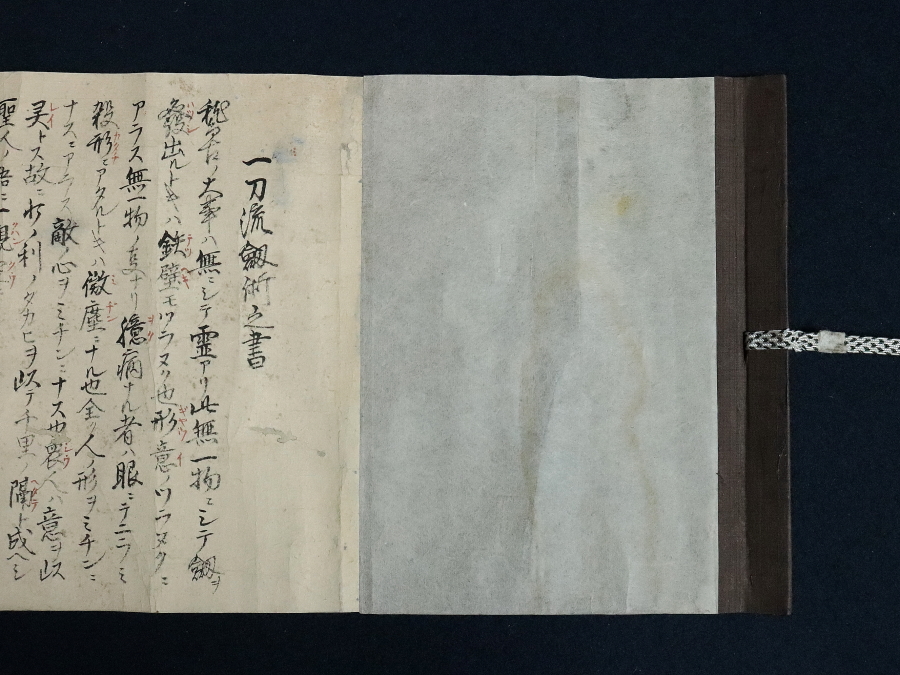 一刀流劔術之書
稽古ノ大事ハ無ニシテ霊アリ此無一物ニシテ劔ヲ
發出ルトキハ鉄壁モツラヌク也形意ノツラヌクニ
アラス無一物ノ ナリ臆病ナル者ハ眼ニテニラミ
殺形ニアタルトキハ微塵ニナル也全ク人ノ形ヲミチンニ
ナスニアラス敵ノ心ヲミチンニナス也 人ハ意ヲ以
灵トス故ニ 利ノタカヒヲ以テ千里ノ隔ト成ヘシ
聖人ノ語ニ一見